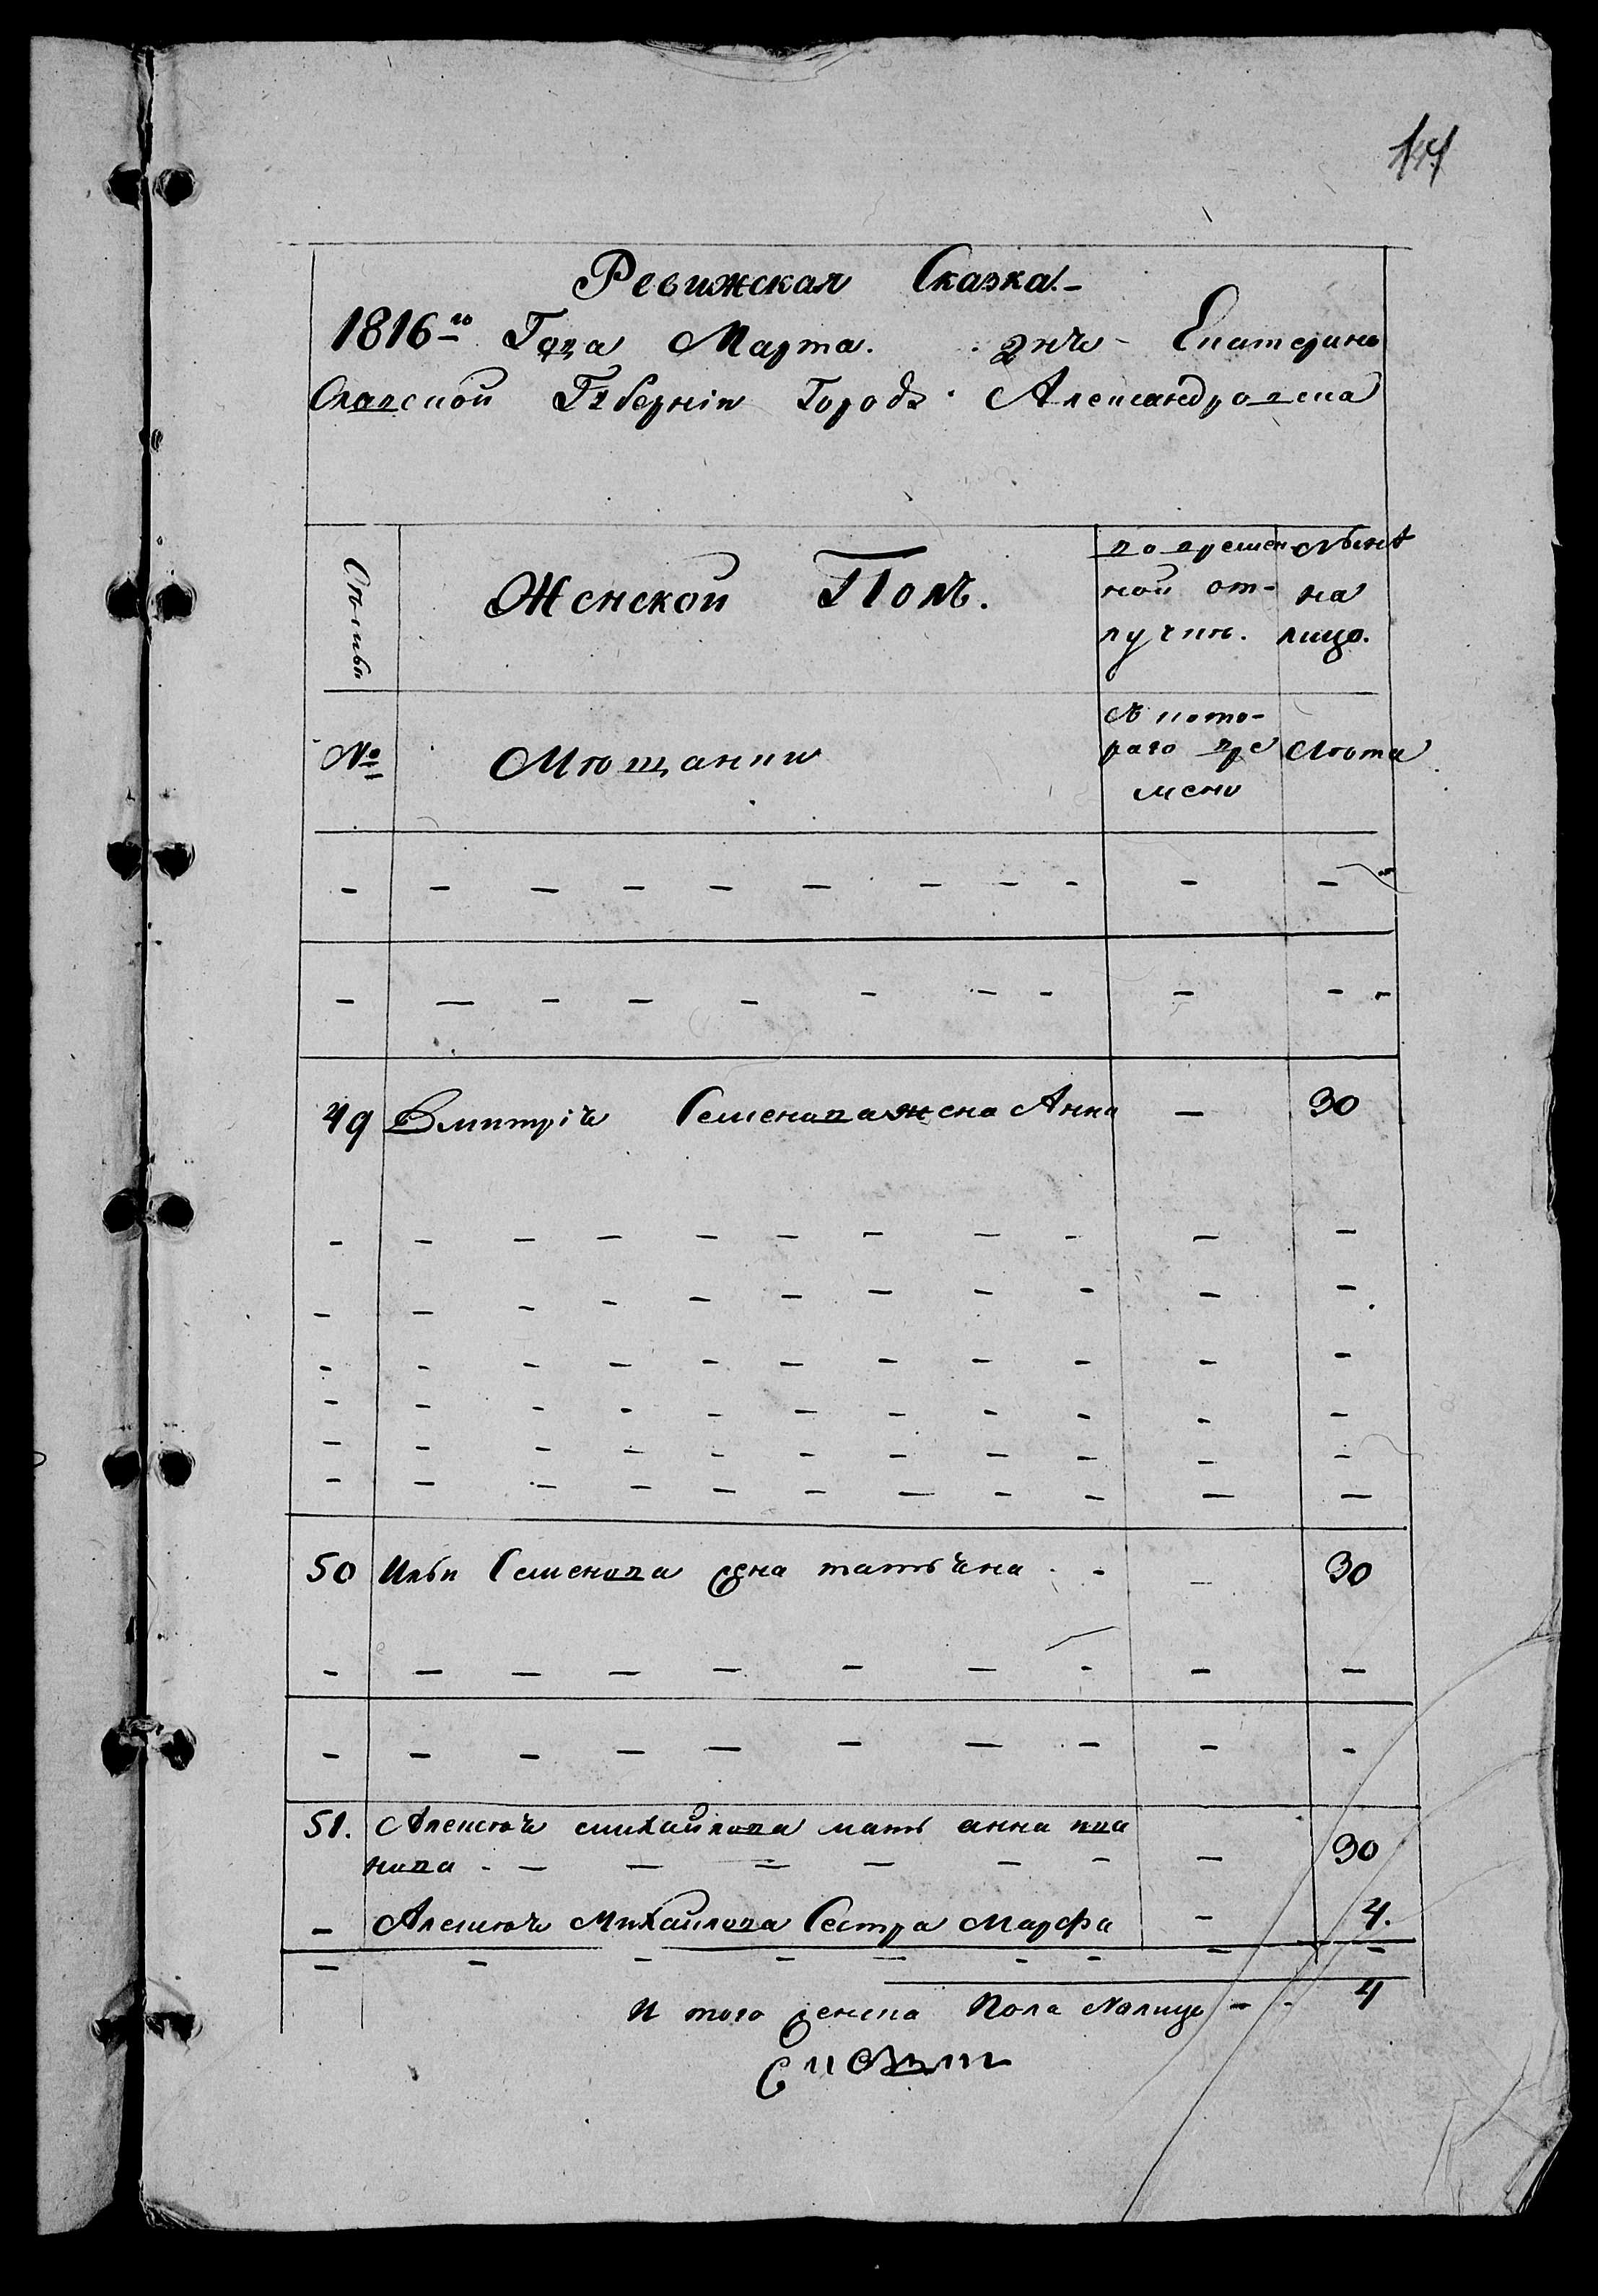 Ревижская Сказка.
1816го Года Марта. дня Екатерино
Славской Губерніи Городъ Александровска
Семьи
Женской Полъ.
во времен
ной от-
лучки.
Нынѣ
на
лицо.
№
Мещанки
С кото-
раго вре
мени
Лѣта
49 Дмитрія Семенова жена Анна — 30
50 Ильи Семенова жена татьяна - — 30
51. Алексѣя михайлова мать анна ива
нова - — 30
— Алексѣя Михайлова Сестра Марфа — 4.
И того женска Пола Налицо — 4